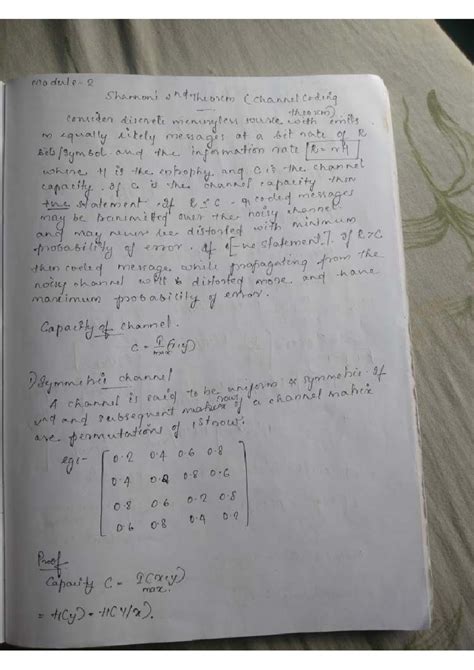 Module-2
Shannon's 2nd Theorem (Channel Coding
Theorem)
Consider discrete memoryless source with emits
m equally likely messages at a bit rate of R
bits/symbol and the information rate R = rH
where H is the entrophy and C is the channel
capacity. If C is the channel capacity then
+ve statement. If R ≤ C. coded messages
may be transmitted over the noisy channel
and may never be distorted with minimum
probability of error. If [-ve statement]. If R>C
then coded message while propagating from the
noisy channel will be distorted more and have
maximum probability of error.
Capacity of channel.
C = I(x;y)
max
1) Symmetric channel
A channel is said to be uniform or symmetric if
and subsequent rows of a channel matrix
are permutations of 1st row.
eg:-
0.2 0.4 0.6 0.8
0.4 0.2 0.8 0.6
0.8 0.6 0.2 0.8
0.6 0.8 0.4 0.2
Proof
Capacity C = I(x;y)
max
= H(y) - H(Y/x).